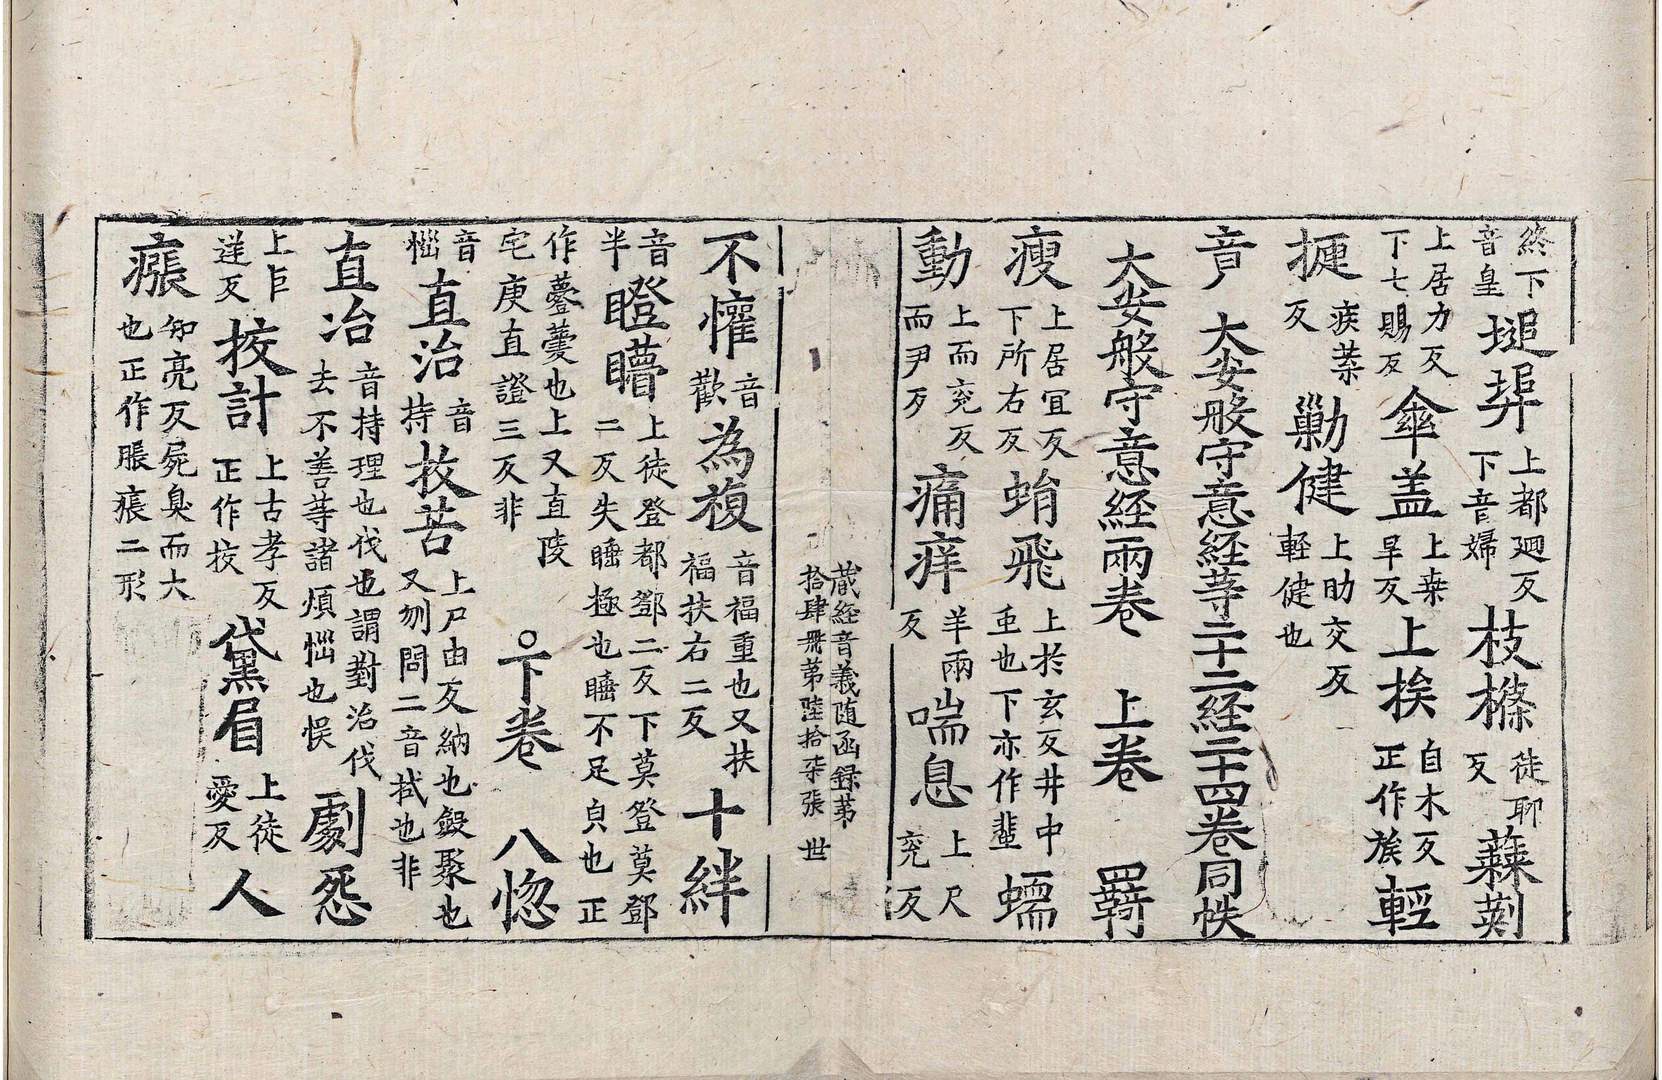 終下音皇塠埠上都廻反下音婦枝樤徒聊反蕀莿
上居力反下七賜反傘盖上桒旱反上挨自木反正作族輕
㨗疾葉反勦健上助交反軽健也
音 大安般守意経等二十二経二十四卷同帙
大安般守意経兩卷 上卷 羇
瘦上居宜反下所右反蜎飛上於玄反井中䖝也下亦作蜚蠕
動上而兖反而尹反痛痒羊兩反喘息上尺兖反
蔵経音義随函録第
拾肆冊第陸拾柒張 世
不懽音歡為複音福重也又扶福扶右二反十絆
音半瞪瞢上徒登都鄧二反下莫登莫鄧二反失睡極也睡不足皃也正
作䒭薹也上又直陵宅庚直證三反非 ○下卷 八惚
音惱直治音持收苦上尸由反納也斂聚也又刎問二音拭也非
直治音持理也伐也謂對治伐去不善等諸煩惱也悮劇惡
上巨逆反挍計上古孝反正作挍黛眉上徒愛反人
瘬知亮反屍臭而大也正作脹痮二形